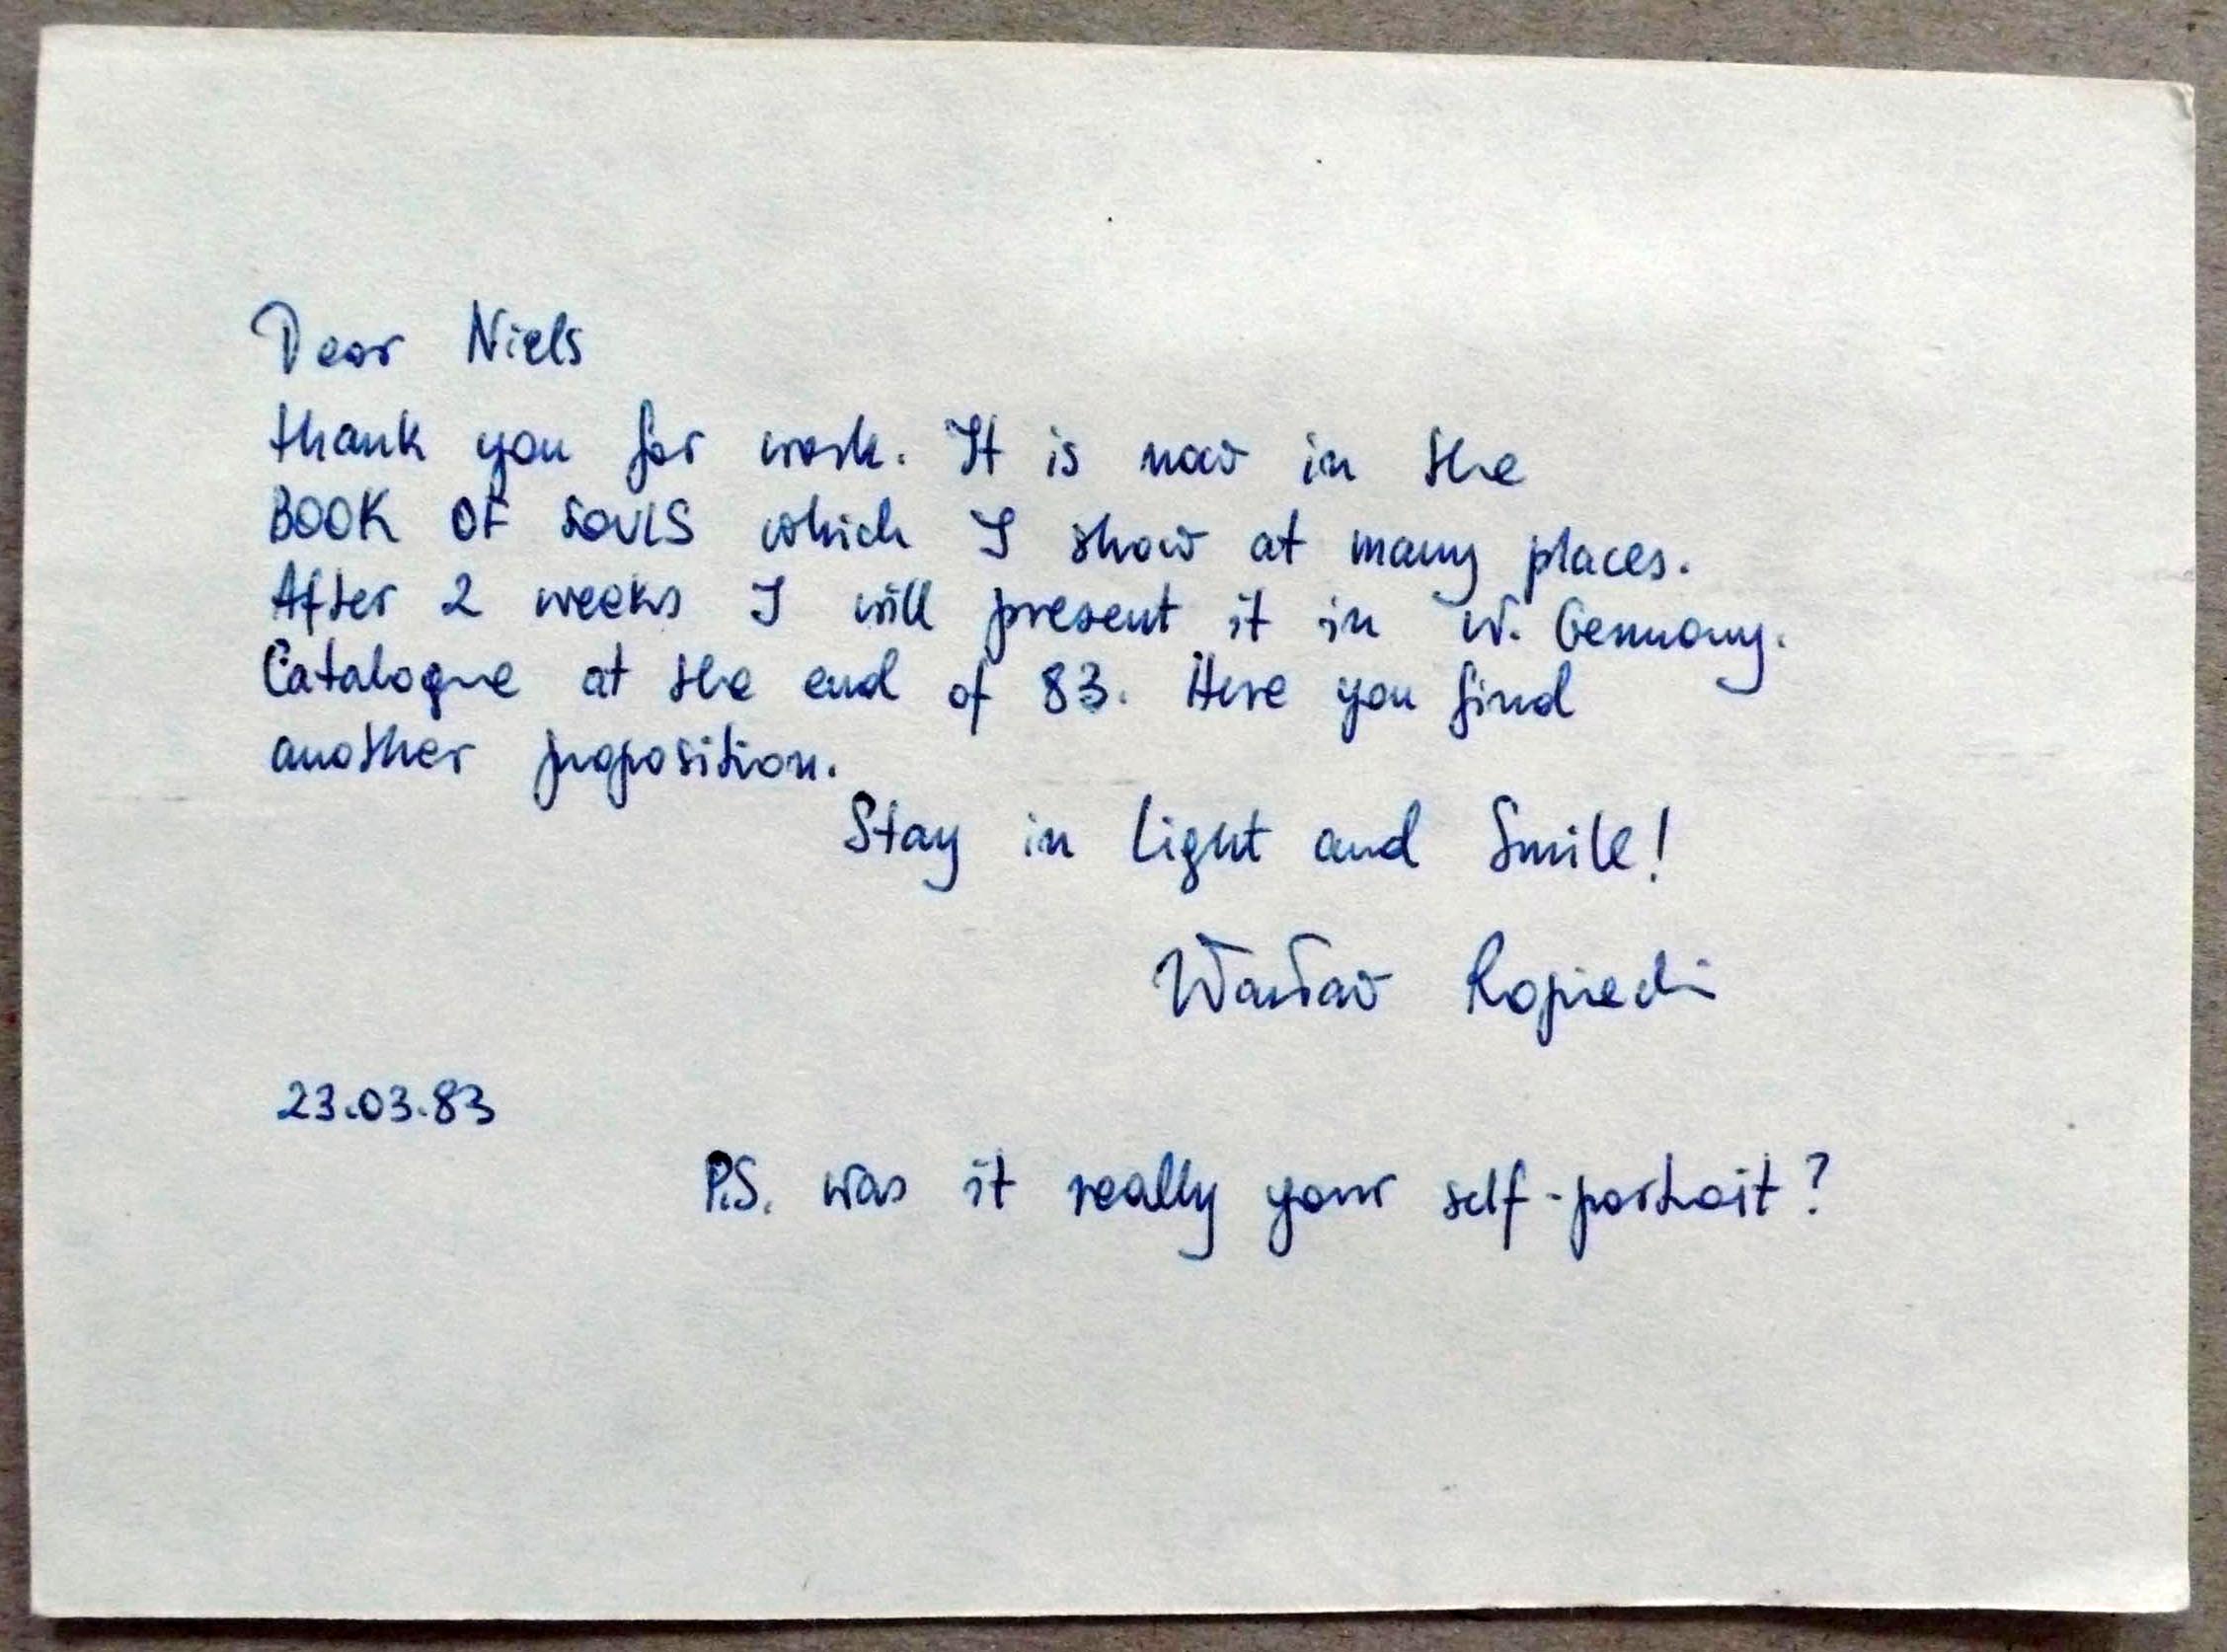 Dear Niels
thank you for work. It is now in the
BOOK OF SOULS which I show at many places.
After 2 weeks I will present it in W. Germany.
Catalogue at the end of 83. Here you find
another proposition.
Stay in Light and Smile!
Wacław Ropiecki
23.03.83
P.S. was it really your self-portrait?